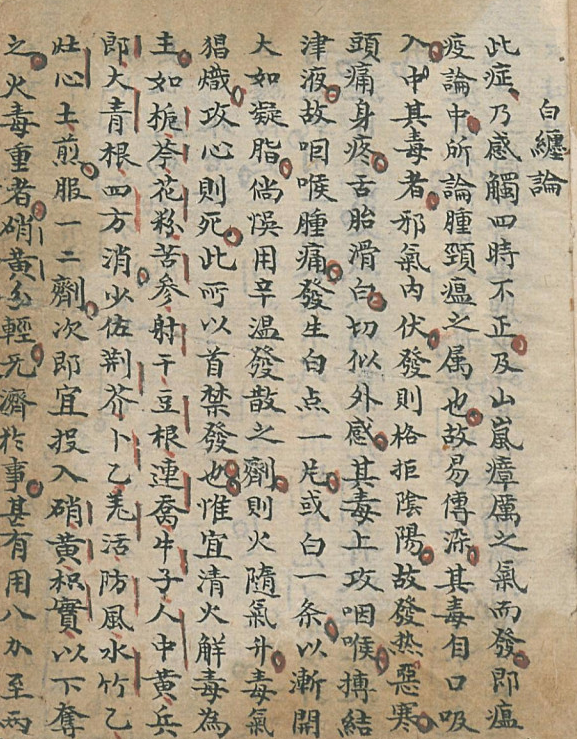 白纏論
此症乃感觸四時不正及山嵐瘴厲之氣而發即瘟
疫論中所論腫頸瘟之属也故易傳染其毒自口吸
入中其毒者邪氣内伏發則格拒陰陽故發热惡寒
頭痛身疼舌胎滑白切似外感其毒上攻咽喉摶結
津液故咽喉腫痛發生白点一片或白一条以漸開
大如凝脂倘悮用辛温發散之劑則火隨氣升毒氣
猖熾攻心則死此所以首禁發也惟宜清火解毒為
主如栀芩花粉苦參射干豆根連喬牛子人中黄兵
郎大青根四方消少佐荆芥卜乙羌活防風水竹乙
灶心土煎服一二劑次即宜投入硝黄枳實以下奪
之火毒重者硝黄分輕无濟於事甚有用八个至兩